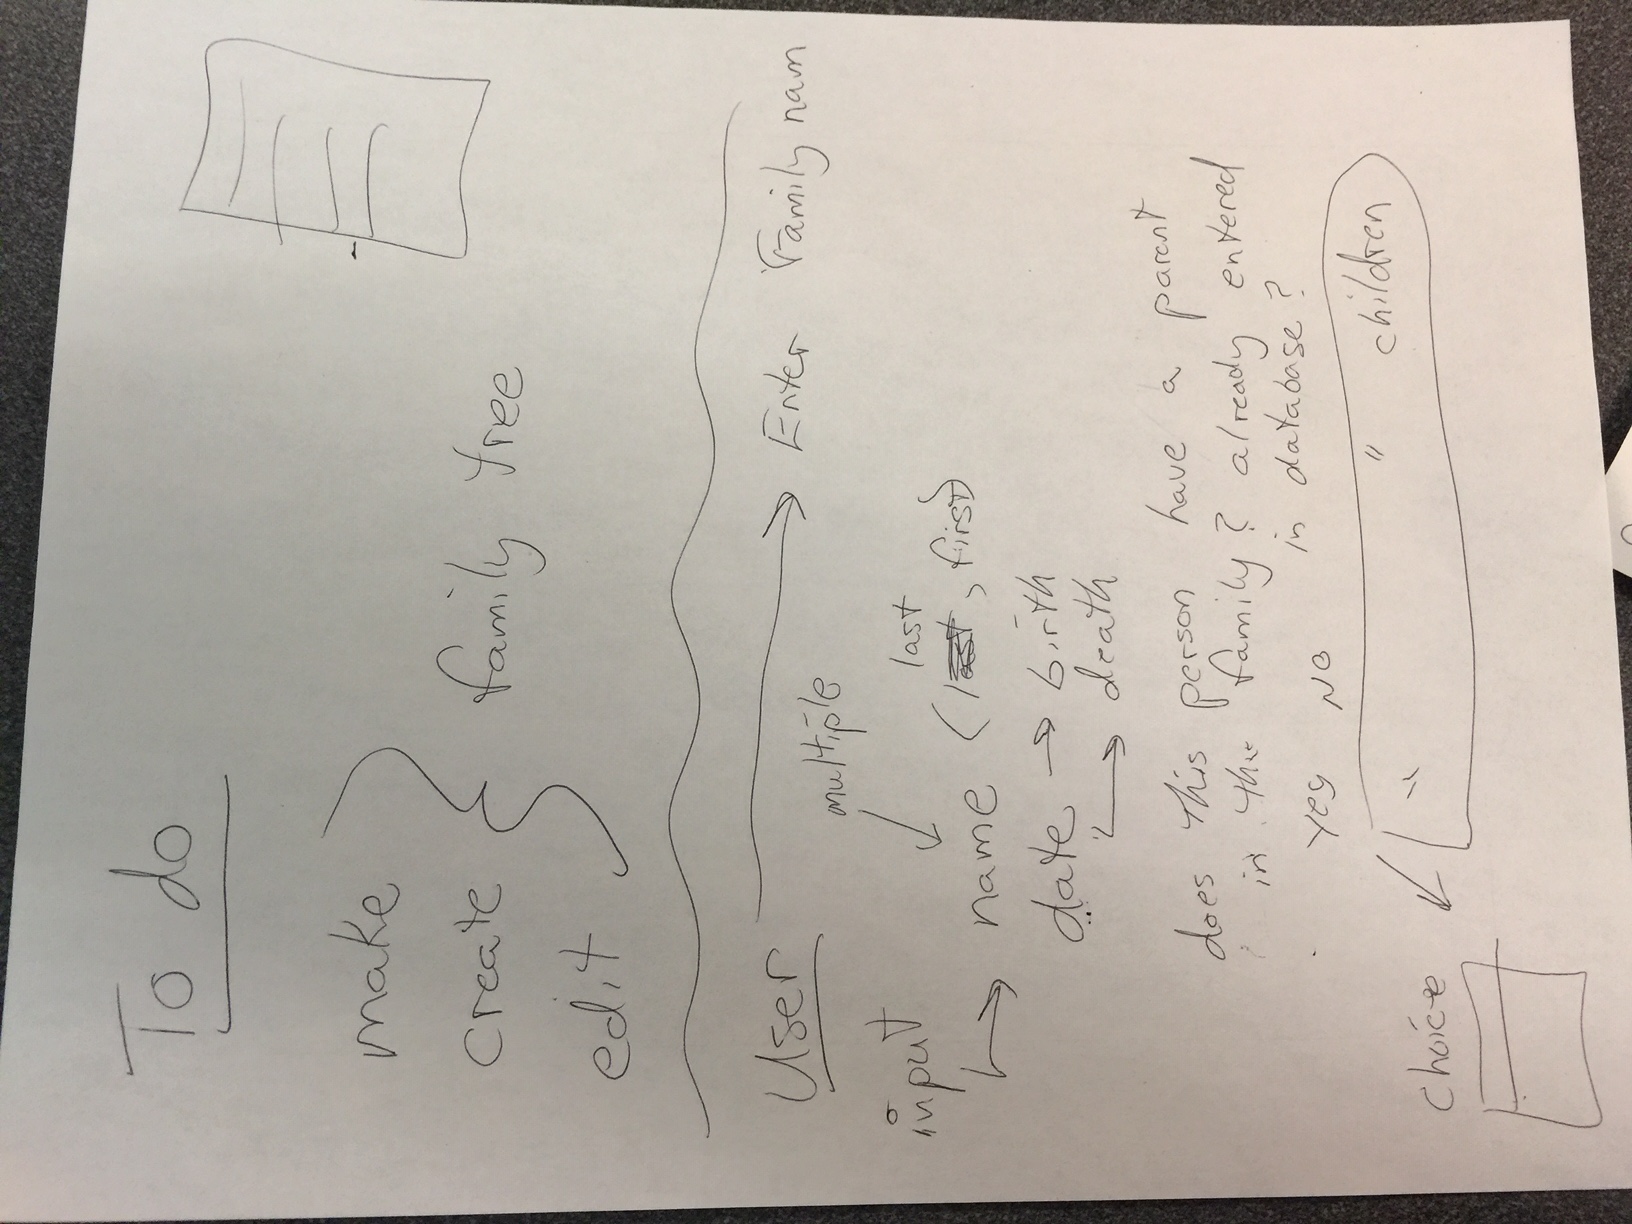 To do
make
create
edit
family tree
User
Enter Family nam
multiple
input
last
name (last, first)
date → birth
death
does this person have a parent
in the family? already entered
in database?
yes NO
" " children
choice